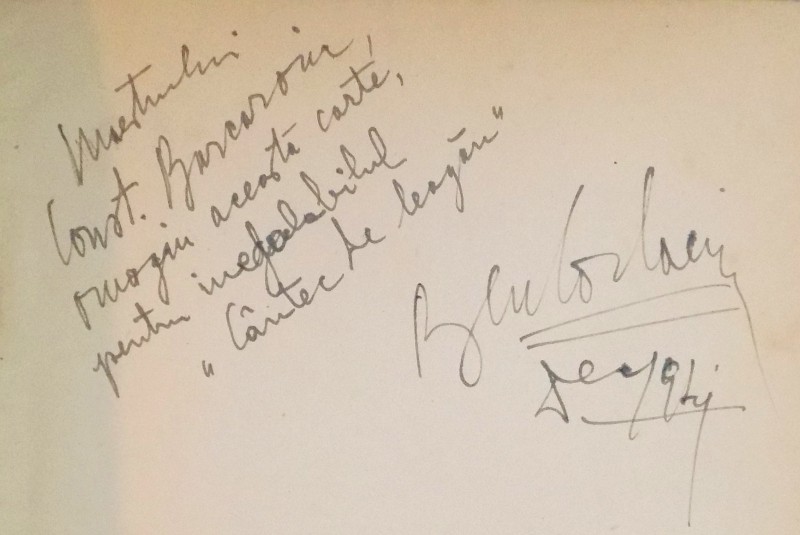 Maestrului
Const. Barcaroiu,
omagiu această carte,
pentru inegalabilul
„Cântec de leagăn"
Ben Corlaciu
Dec/94